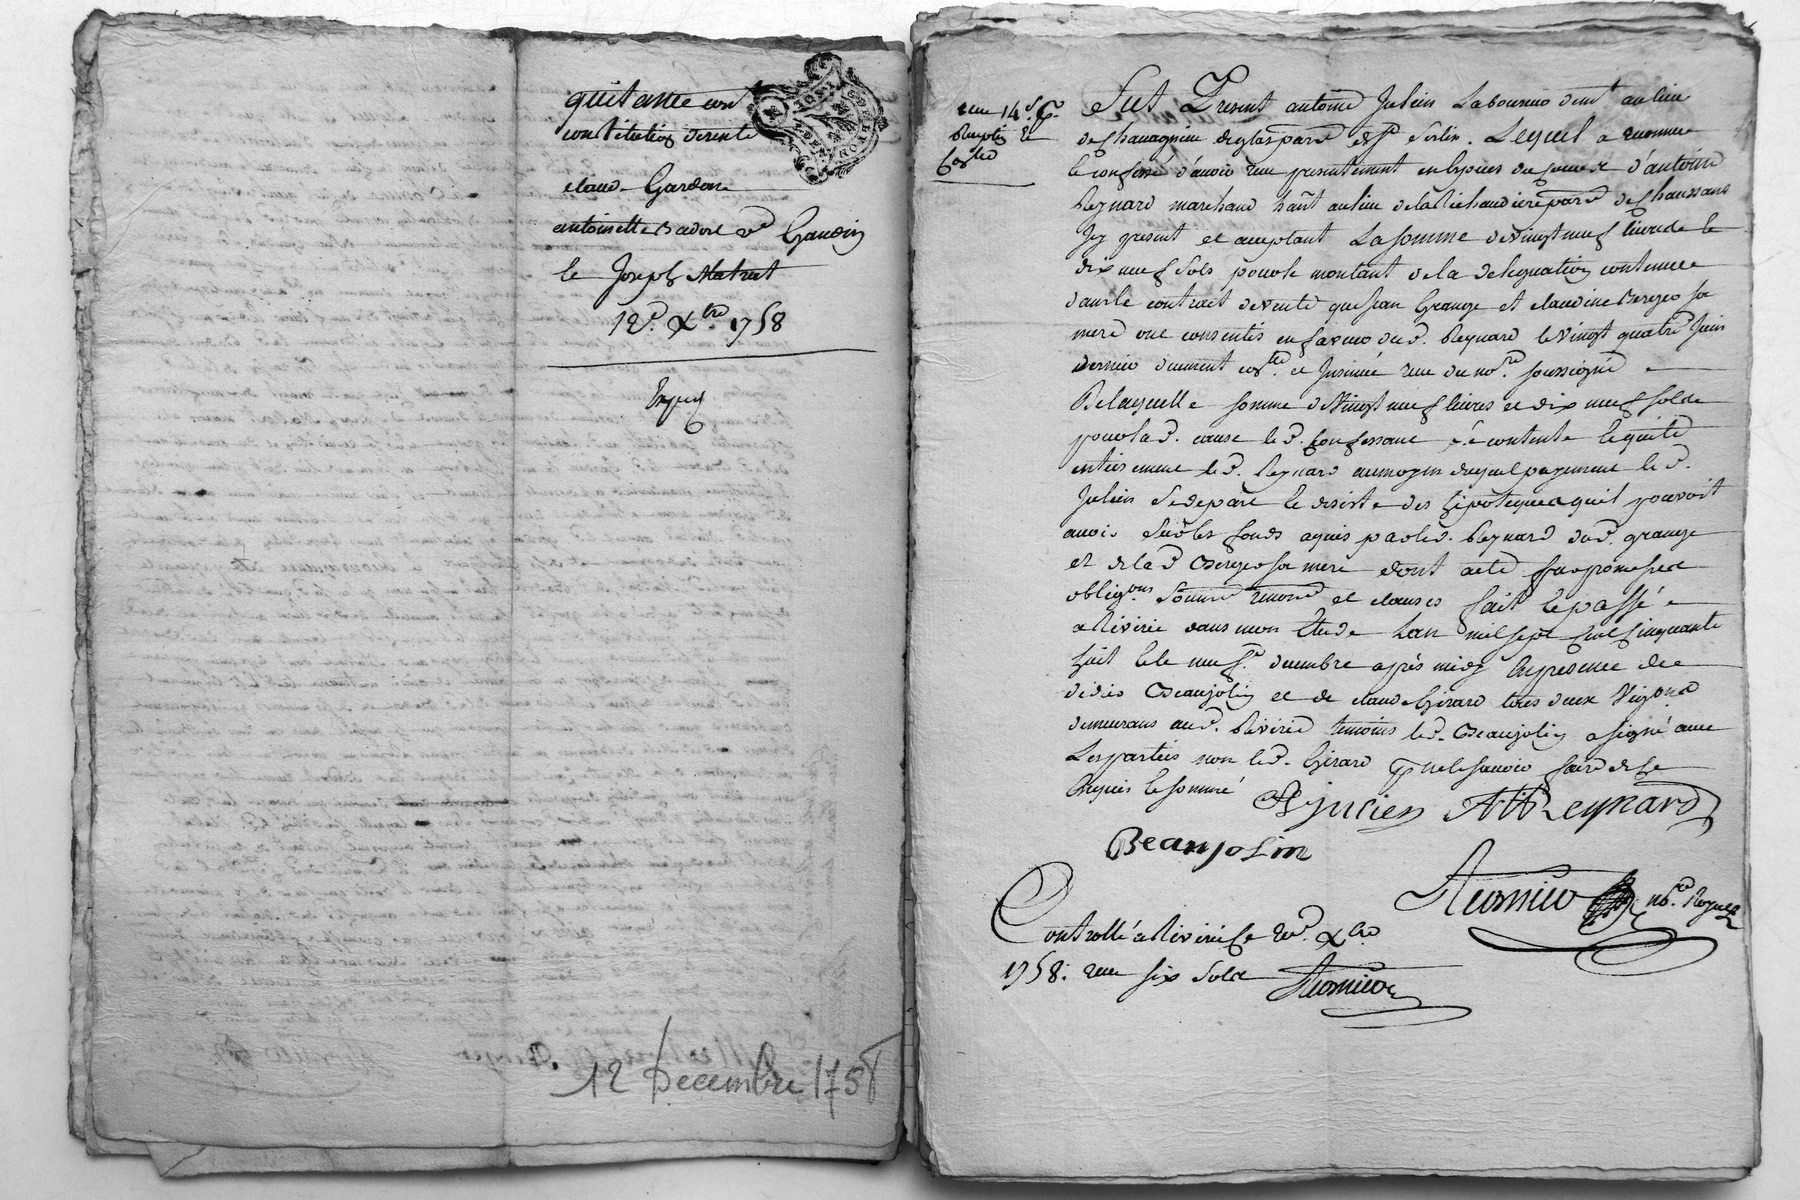 quitance
constitution de rente
claude Gardon
antoinette Badoil ve Gaudin
le Joseph Matrat
12e. Xbre. 1758
Expen
12 Decembre 1758
reçu 14 s
Fut Present antoine Julien Laboureur demt au lieu
de Chavagnieu deglas parre de st Sorlin. Lequel a reconnu
le confessé d'avoir reçu presentement en especes du cours d'antoine
Reynard marchand habt au lieu de la Richaudiere parre de Chaussans
Icy present et acceptant La somme de vingt neuf livres le
dix neuf sols pour le montant de la delegation contenue
dans le contrait de vente que Jean Grange et claudine Berger sa
mere ont consentis en faveur dud. Reynard le vingt quatre Juin
dernier duement et Insinué reçu du nore. soussigné
De laquelle somme de vingt neuf livres et dix neuf sols
pour lad. cause led. Confessant s'e contente le quitte
entierement led. Reynard au moyen duquel payement led.
Julien se depart le desiste des hipoteques quil pouvoit
avoir sur les fonds aquis par led. Reynard dud. grange
et de lad. Berger sa mere dont acte fait promesses
obligons soumis renoncé et clauses fait le passé
a Riverie dans mon Etude Lan mil sept cent cinquante
huit le le neuf. decembre après midy En presence de
didier Beaujolin et de claude Girard tous deux Vignons
demeurans aud. Riverie temoins led. Beaujolin a signé avec
Les parties non led. Girard pour ne le savoir faire de ce
Enquis le sommé
A Julien Ant Reynard
Beaujolin
nore. Royal
Controllé a Riverie le Xbre
1758. reçu six sols